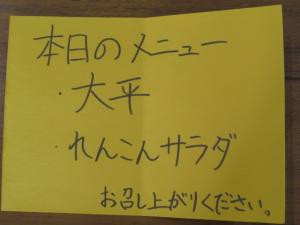 本日のメニュー
・大平
・れんこんサラダ
お召し上がりください。